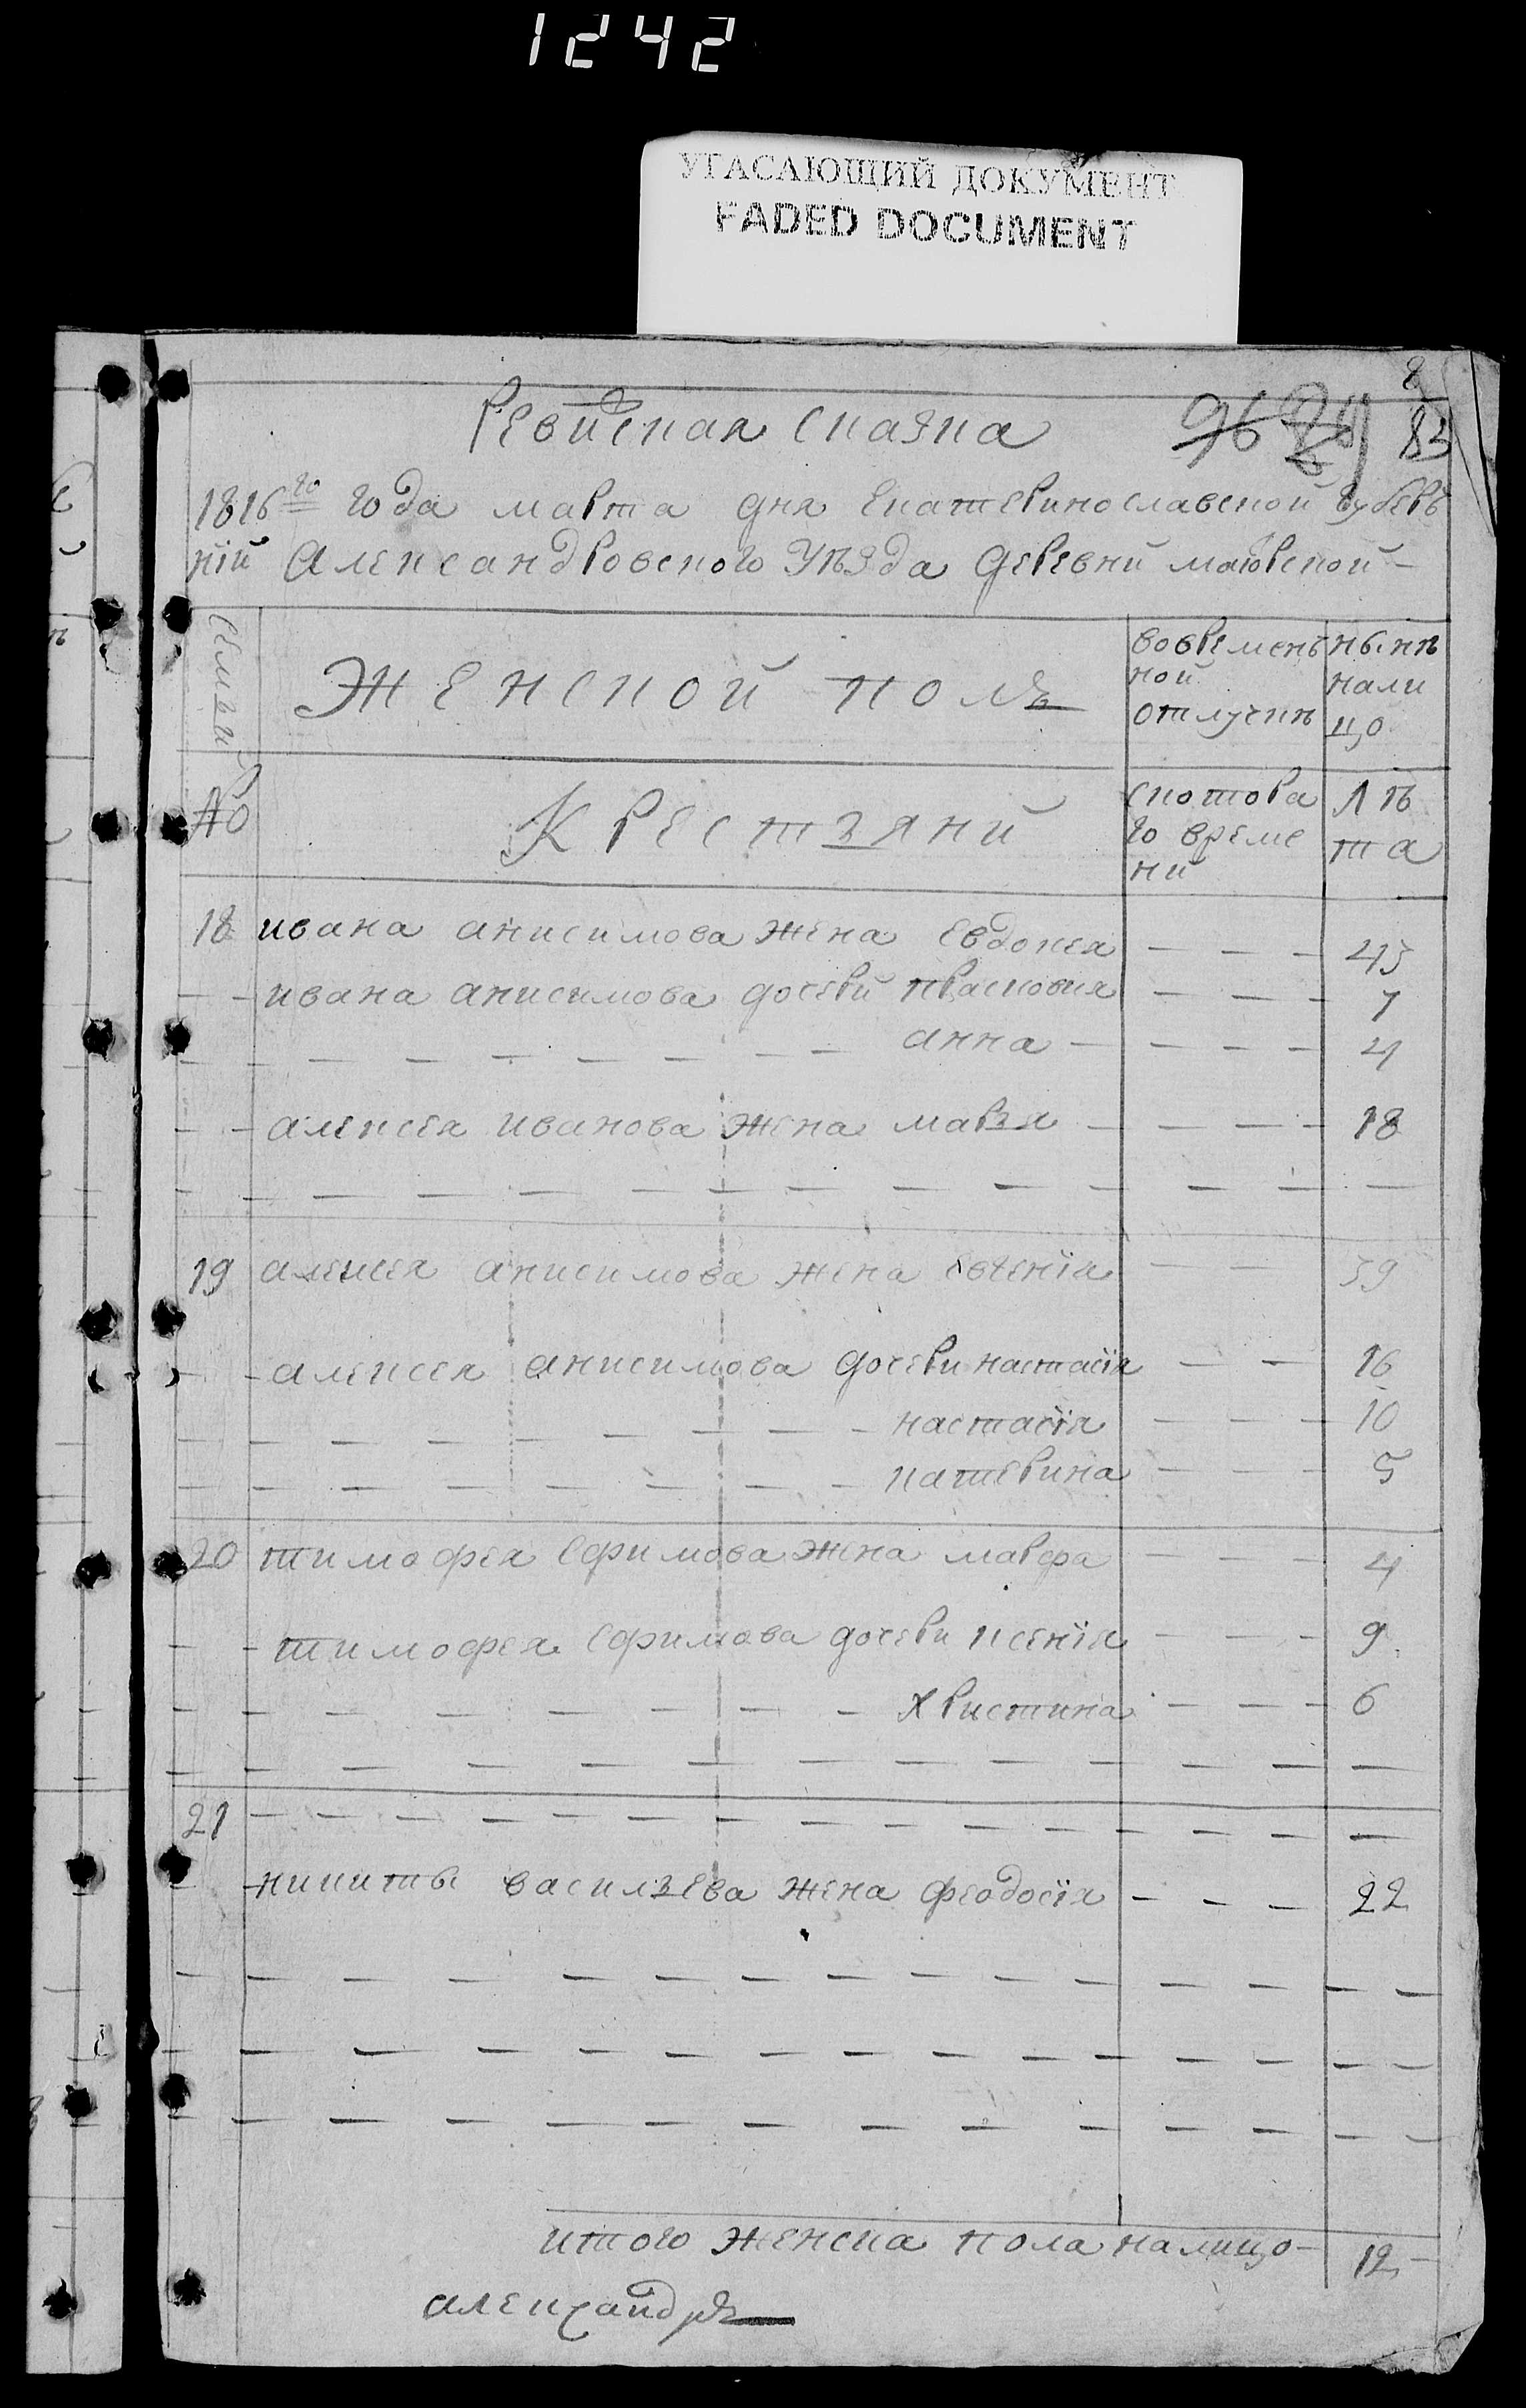 1242
УГАСАЮЩИЙ ДОКУМЕНТ
FADED DOCUMENT
8
Ревиская сказка 96 83
1816го года марта дня екатеринославской губерь
нiй Александровского Уѣзда деревни маювской
Семьи женской полъ вовремень нынѣ
ной нали
отлучкѣ цо
№ Крестьяни скотора лѣ
го време та
ни
18 ивана анисимова жена евдокея — — — 45
— — ивана анисимова дочери прасковия — — — 7
— — — — — — — анна — — — — 4
— — алексея иванова жена марья — — — — 18
19 алексея анисимова жена евгенiя — — 39
— — алексея анисимова дочери настасiя — — 16
— — — — — — — настасiя — — — 10
— — — — — — — катерина — — — 5
20 тимофея ефимова жена марфа — — — 4
— — тимофея ефимова дочери ксенiя — — — 9
— — — — — — — христина — — — 6
21 — — — — — — — — — —
— — никиты васильева жена феодосiя — — — 22
итого женска пола налицо — 12
александръ